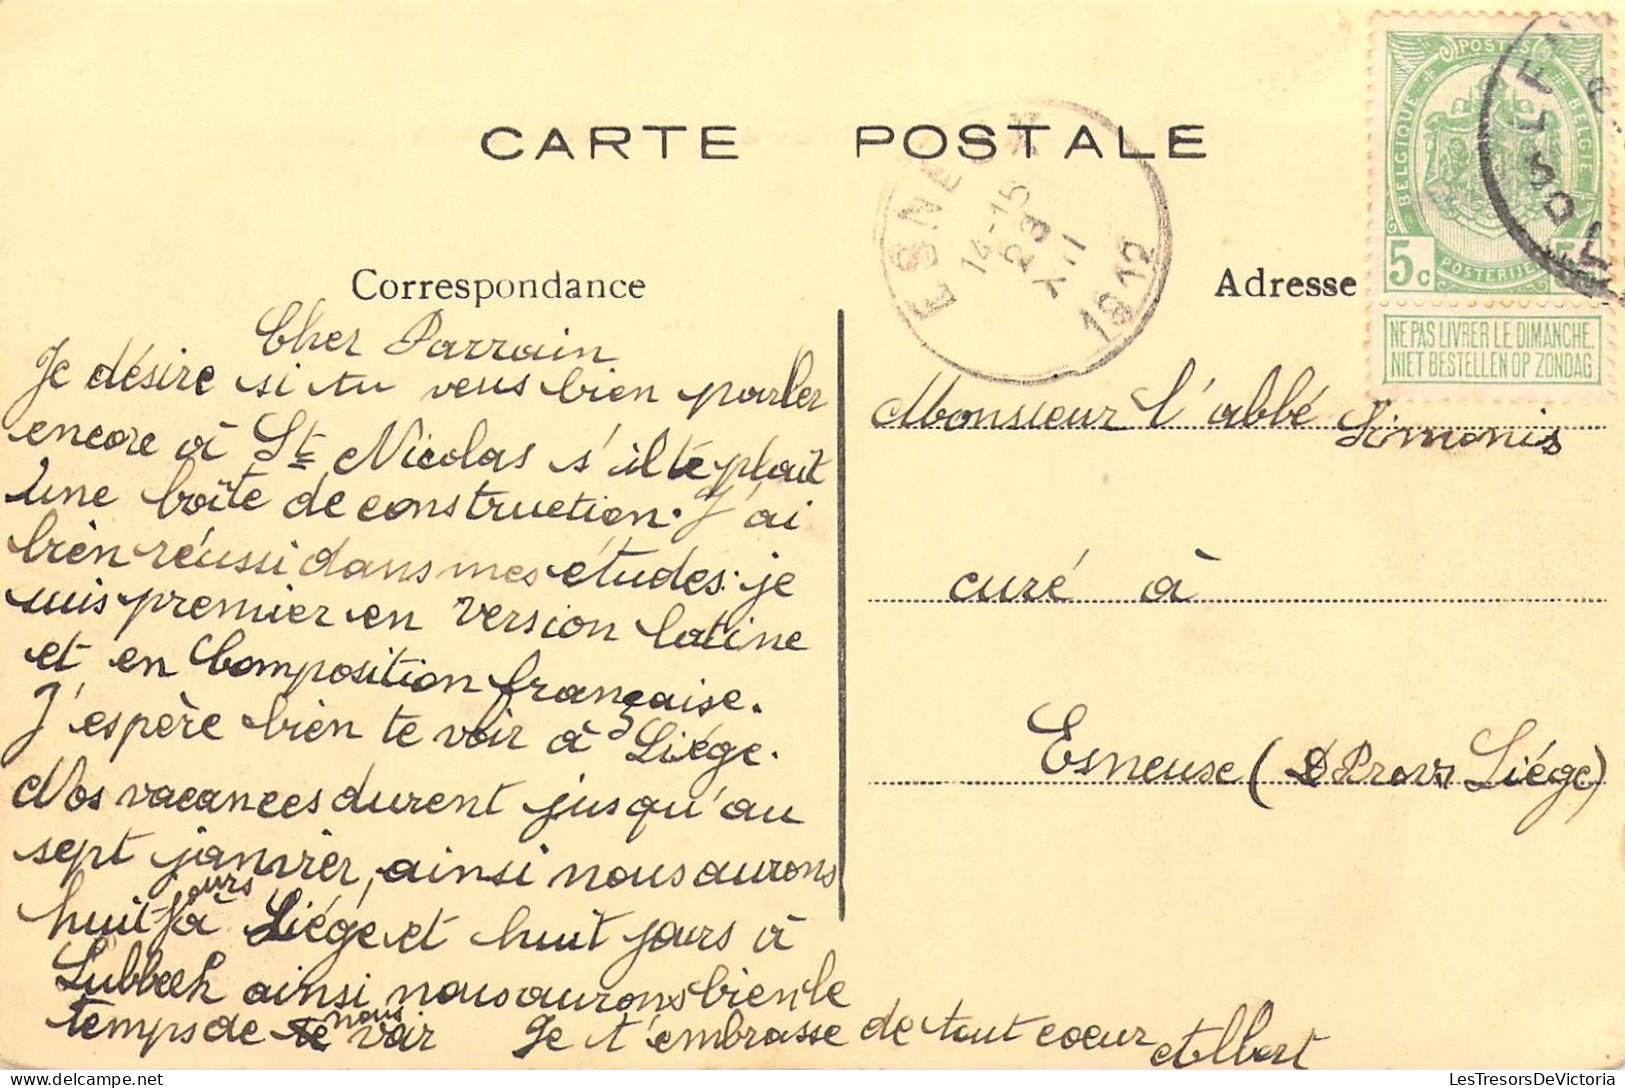 CARTE POSTALE
Correspondance
Adresse
POSTES
BELGIQUE
BELGIE
5c
POSTERIJEN
NE PAS LIVRER LE DIMANCHE.
NIET BESTELLEN OP ZONDAG
ESNEUX
14-15
23
XII
1912
OSTE
Cher Parrain
Je désire si tu veus bien parler
encore à St Nicolas s'il te plait
une boîte de construction. J'ai
bien réussi dans mes études: je
suis premier en version latine
et en Composition française.
J'espère bien te voir à Liége.
Nos vacances durent jusqu'au
sept janvier, ainsi nous aurons
huit jours à Liége et huit jours à
Lubbeek ainsi nous aurons bien le
temps de nous voir Je t'embrasse de tout coeur Albert
Monsieur l'abbé Simonis
curé à
Esneuse (Prov. Liége)
LesTresorsDeVictoria.com